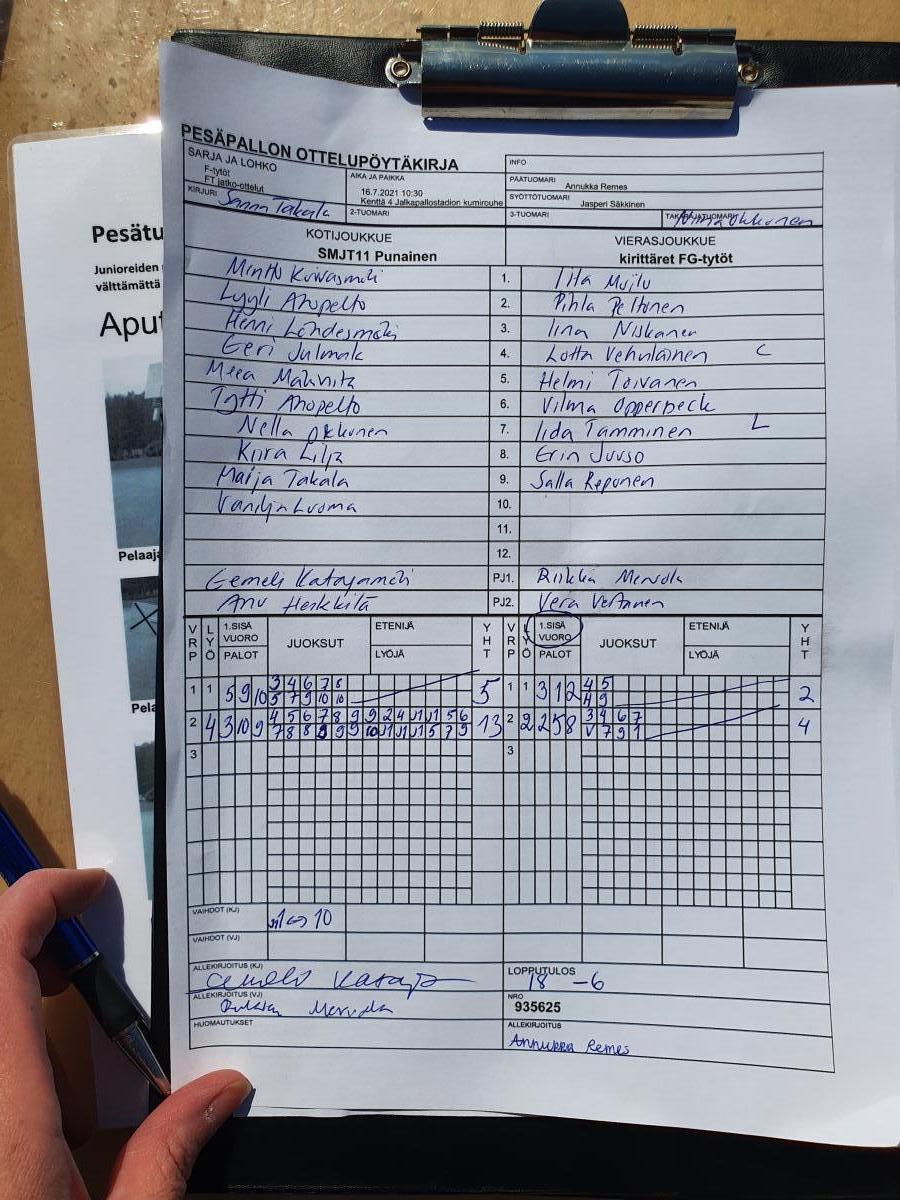 PESÄPALLON OTTELUPÖYTÄKIRJA
SARJA JA LOHKO
F-tytöt
FT jatko-ottelut
AIKA JA PAIKKA
16.7.2021 10:30
Kenttä 4 Jalkapallostadion kumirouhe
INFO
PÄÄTUOMARI Annukka Remes
SYÖTTÖTUOMARI Jasperi Säkkinen
KIRJURI Sanna Takala
2-TUOMARI
3-TUOMARI
TAKARAJATUOMARI Okkonen
KOTIJOUKKUE
SMJT11 Punainen
VIERASJOUKKUE
kirittäret FG-tytöt
Minttu 1. Iita Muilu
Lyyli Ahopelto 2. Pihla Peltonen
Henni Löhdesmäki 3. Iina Niskanen
Eeri Julmak 4. Lotta Vehniäinen C
Meea 5. Helmi Toivanen
Tytti Ahopelto 6. Vilma Opperbeck
Nella Okkonen 7. Iida Tamminen L
Kiira Lilja 8. Erin Juuso
Maija Takala 9. Salla Reponen
Vanilja Luoma 10.
11.
12.
Eemeli Katajamäki PJ1. Riikka Mervola
Anu Herkkilä PJ2. Vera Vertanen
VRP LYÖ 1.SISÄ VUORO PALOT JUOKSUT ETENIJÄ LYÖJÄ YHT VRP LYÖ 1.SISÄ VUORO PALOT JUOKSUT ETENIJÄ LYÖJÄ YHT
1 1 5 9 10 3 4 6 7 8 5 1 1 3 1 2 4 5 2
5 7 9 10 10 4 9
2 4 3 10 9 4 5 6 7 8 9 9 2 4 J1 J1 5 6 13 2 2 2 5 8 3 4 6 7 4
7 8 8 9 9 9 10 J1 J1 J1 5 7 9 V 7 9 1
3 3
VAIHDOT (KJ) J1 <-> 10
VAIHDOT (VJ)
ALLEKIRJOITUS (KJ)
LOPPUTULOS
18 -6
ALLEKIRJOITUS (VJ) Riikka Mervola
NRO
935625
HUOMAUTUKSET
ALLEKIRJOITUS
Annukka Remes
Pesätu
Junioreiden
välttämättä
Aput
Pelaaja
Pela